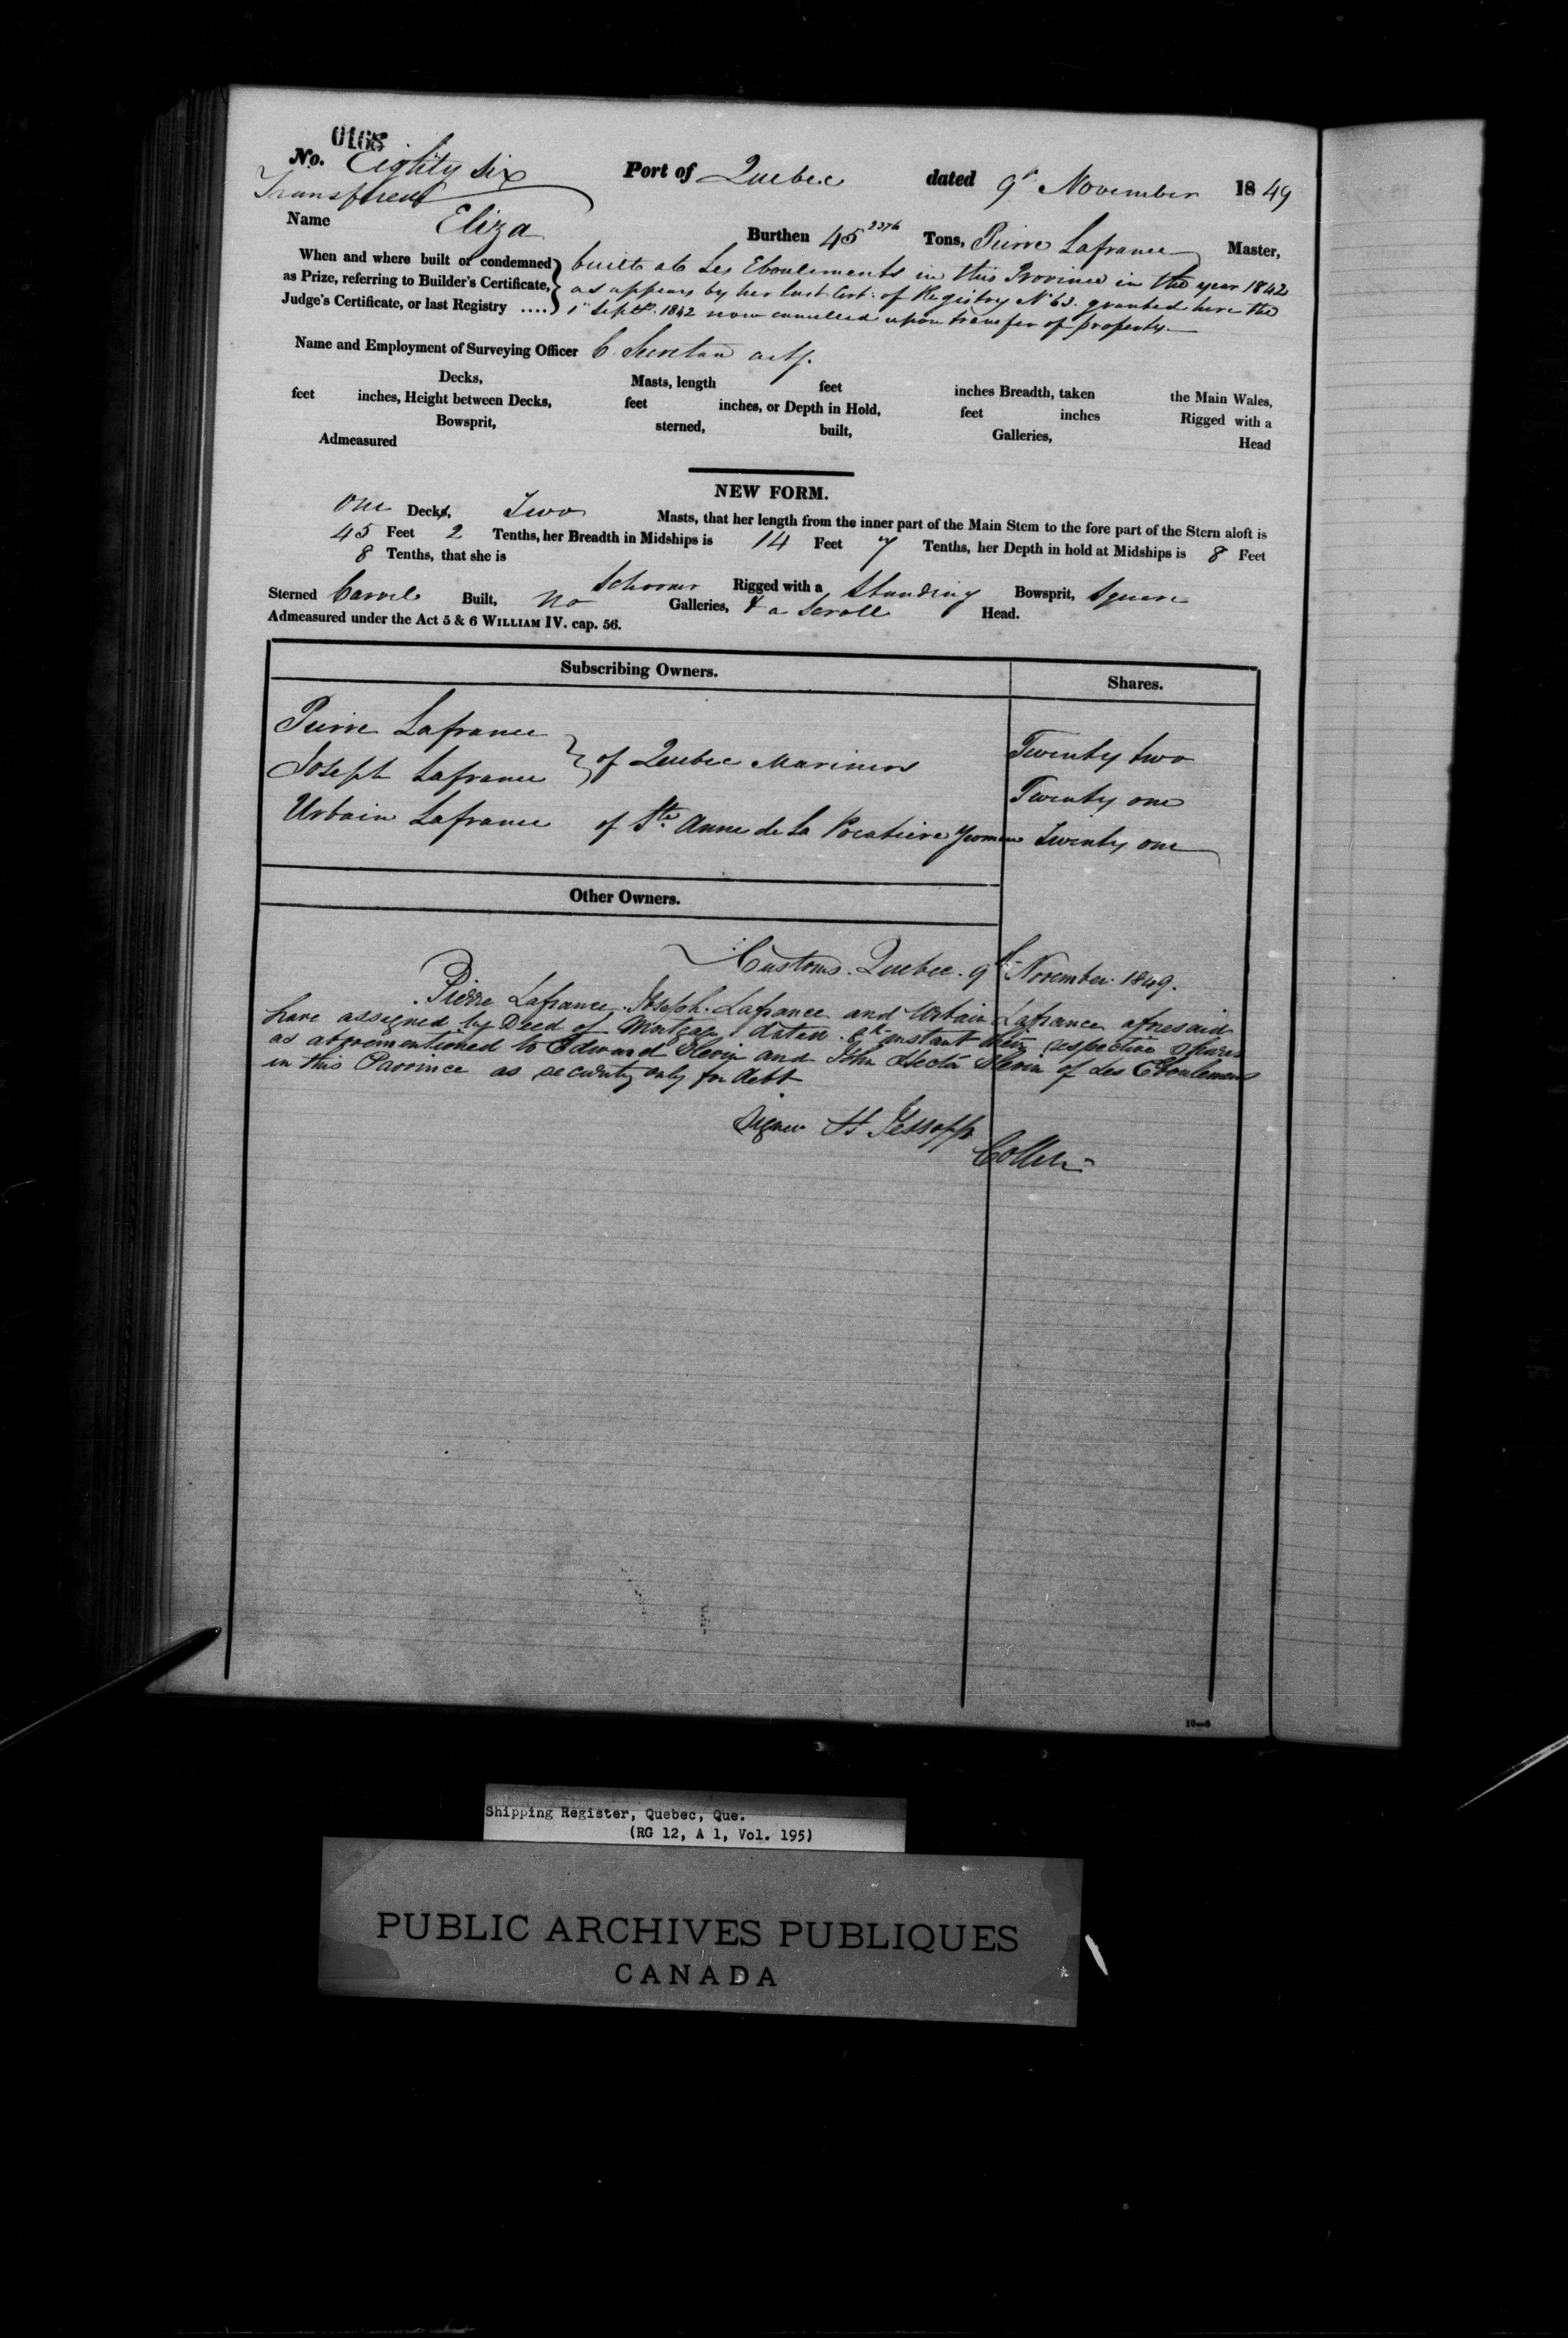 0168
No. Eighty six Port of Quebec dated 9th November 1849
Transferred
Name Eliza Burthen 45 Tons, Pierre Lafrance Master,
When and where built or condemned built at Les Eboulements in this Province in the year 1842
as Prize, referring to Builder's Certificate, as appears by her last Cert. of Registry No 63. granted here the
Judge's Certificate, or last Registry .... 1st Septr. 1842 now cancelled upon transfer of property.
Name and Employment of Surveying Officer C. Secretan actg.
Decks, Masts, length feet inches Breadth, taken the Main Wales,
feet inches, Height between Decks, feet inches, or Depth in Hold, feet inches Rigged with a
Bowsprit, sterned, built, Galleries, Head
Admeasured
NEW FORM.
One Decks, Two Masts, that her length from the inner part of the Main Stem to the fore part of the Stern aloft is
45 Feet 2 Tenths, her Breadth in Midships is 14 Feet 7 Tenths, her Depth in hold at Midships is 8 Feet
8 Tenths, that she is Schooner Rigged with a Standing Bowsprit, Square
Sterned Carvel Built, No Galleries, & a Scroll Head.
Admeasured under the Act 5 & 6 WILLIAM IV. cap. 56.
Subscribing Owners. Shares.
Pierre Lafrance Twenty two
Joseph Lafrance of Quebec Mariners Twenty one
Urbain Lafrance of Ste. Anne de la Pocatiere Yeoman Twenty one
Other Owners.
Customs. Quebec. 9th November 1849.
Pierre Lafrance. Joseph. Lafrance and Urbain Lafrance aforesaid
have assigned by Deed of Mortgage dated instant their respective shares
as aforementioned to Edward Slevin and John Hector Slevin of Les Eboulemens
in this Province as security only for debt
Signed H Jessopp
Collr
10—6
Shipping Register, Quebec, Que.
(RG 12, A 1, Vol. 195)
PUBLIC ARCHIVES PUBLIQUES
CANADA